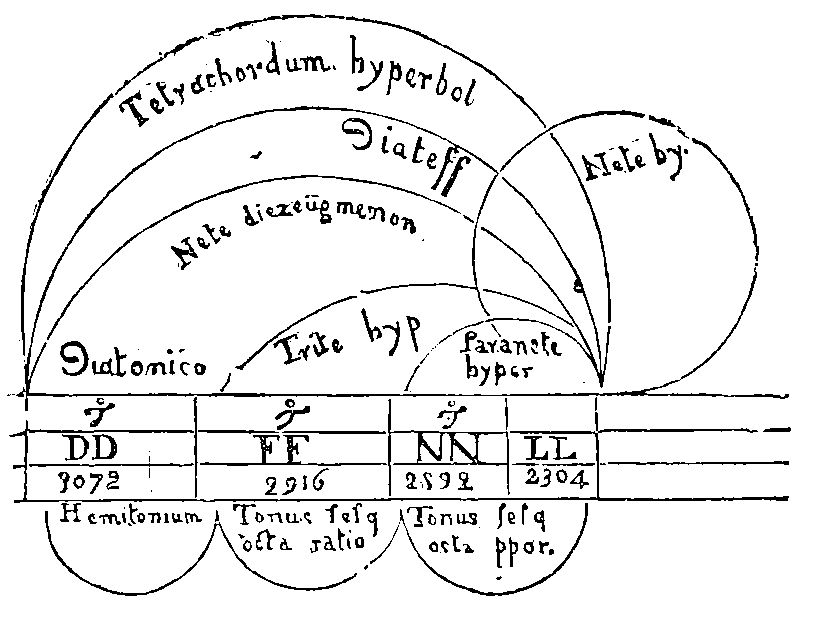 Tetrachordum. hyperbol
Diateſſ
Nete hy.
Nete diezeūgmenon
Diatonico
Trite hyp
Paranete
hyper
DD FF NN LL
3072 2916 2592 2304
Hemitonium
Tonus ſeſq
octa ratio
Tonus ſeſq
octa ppor.